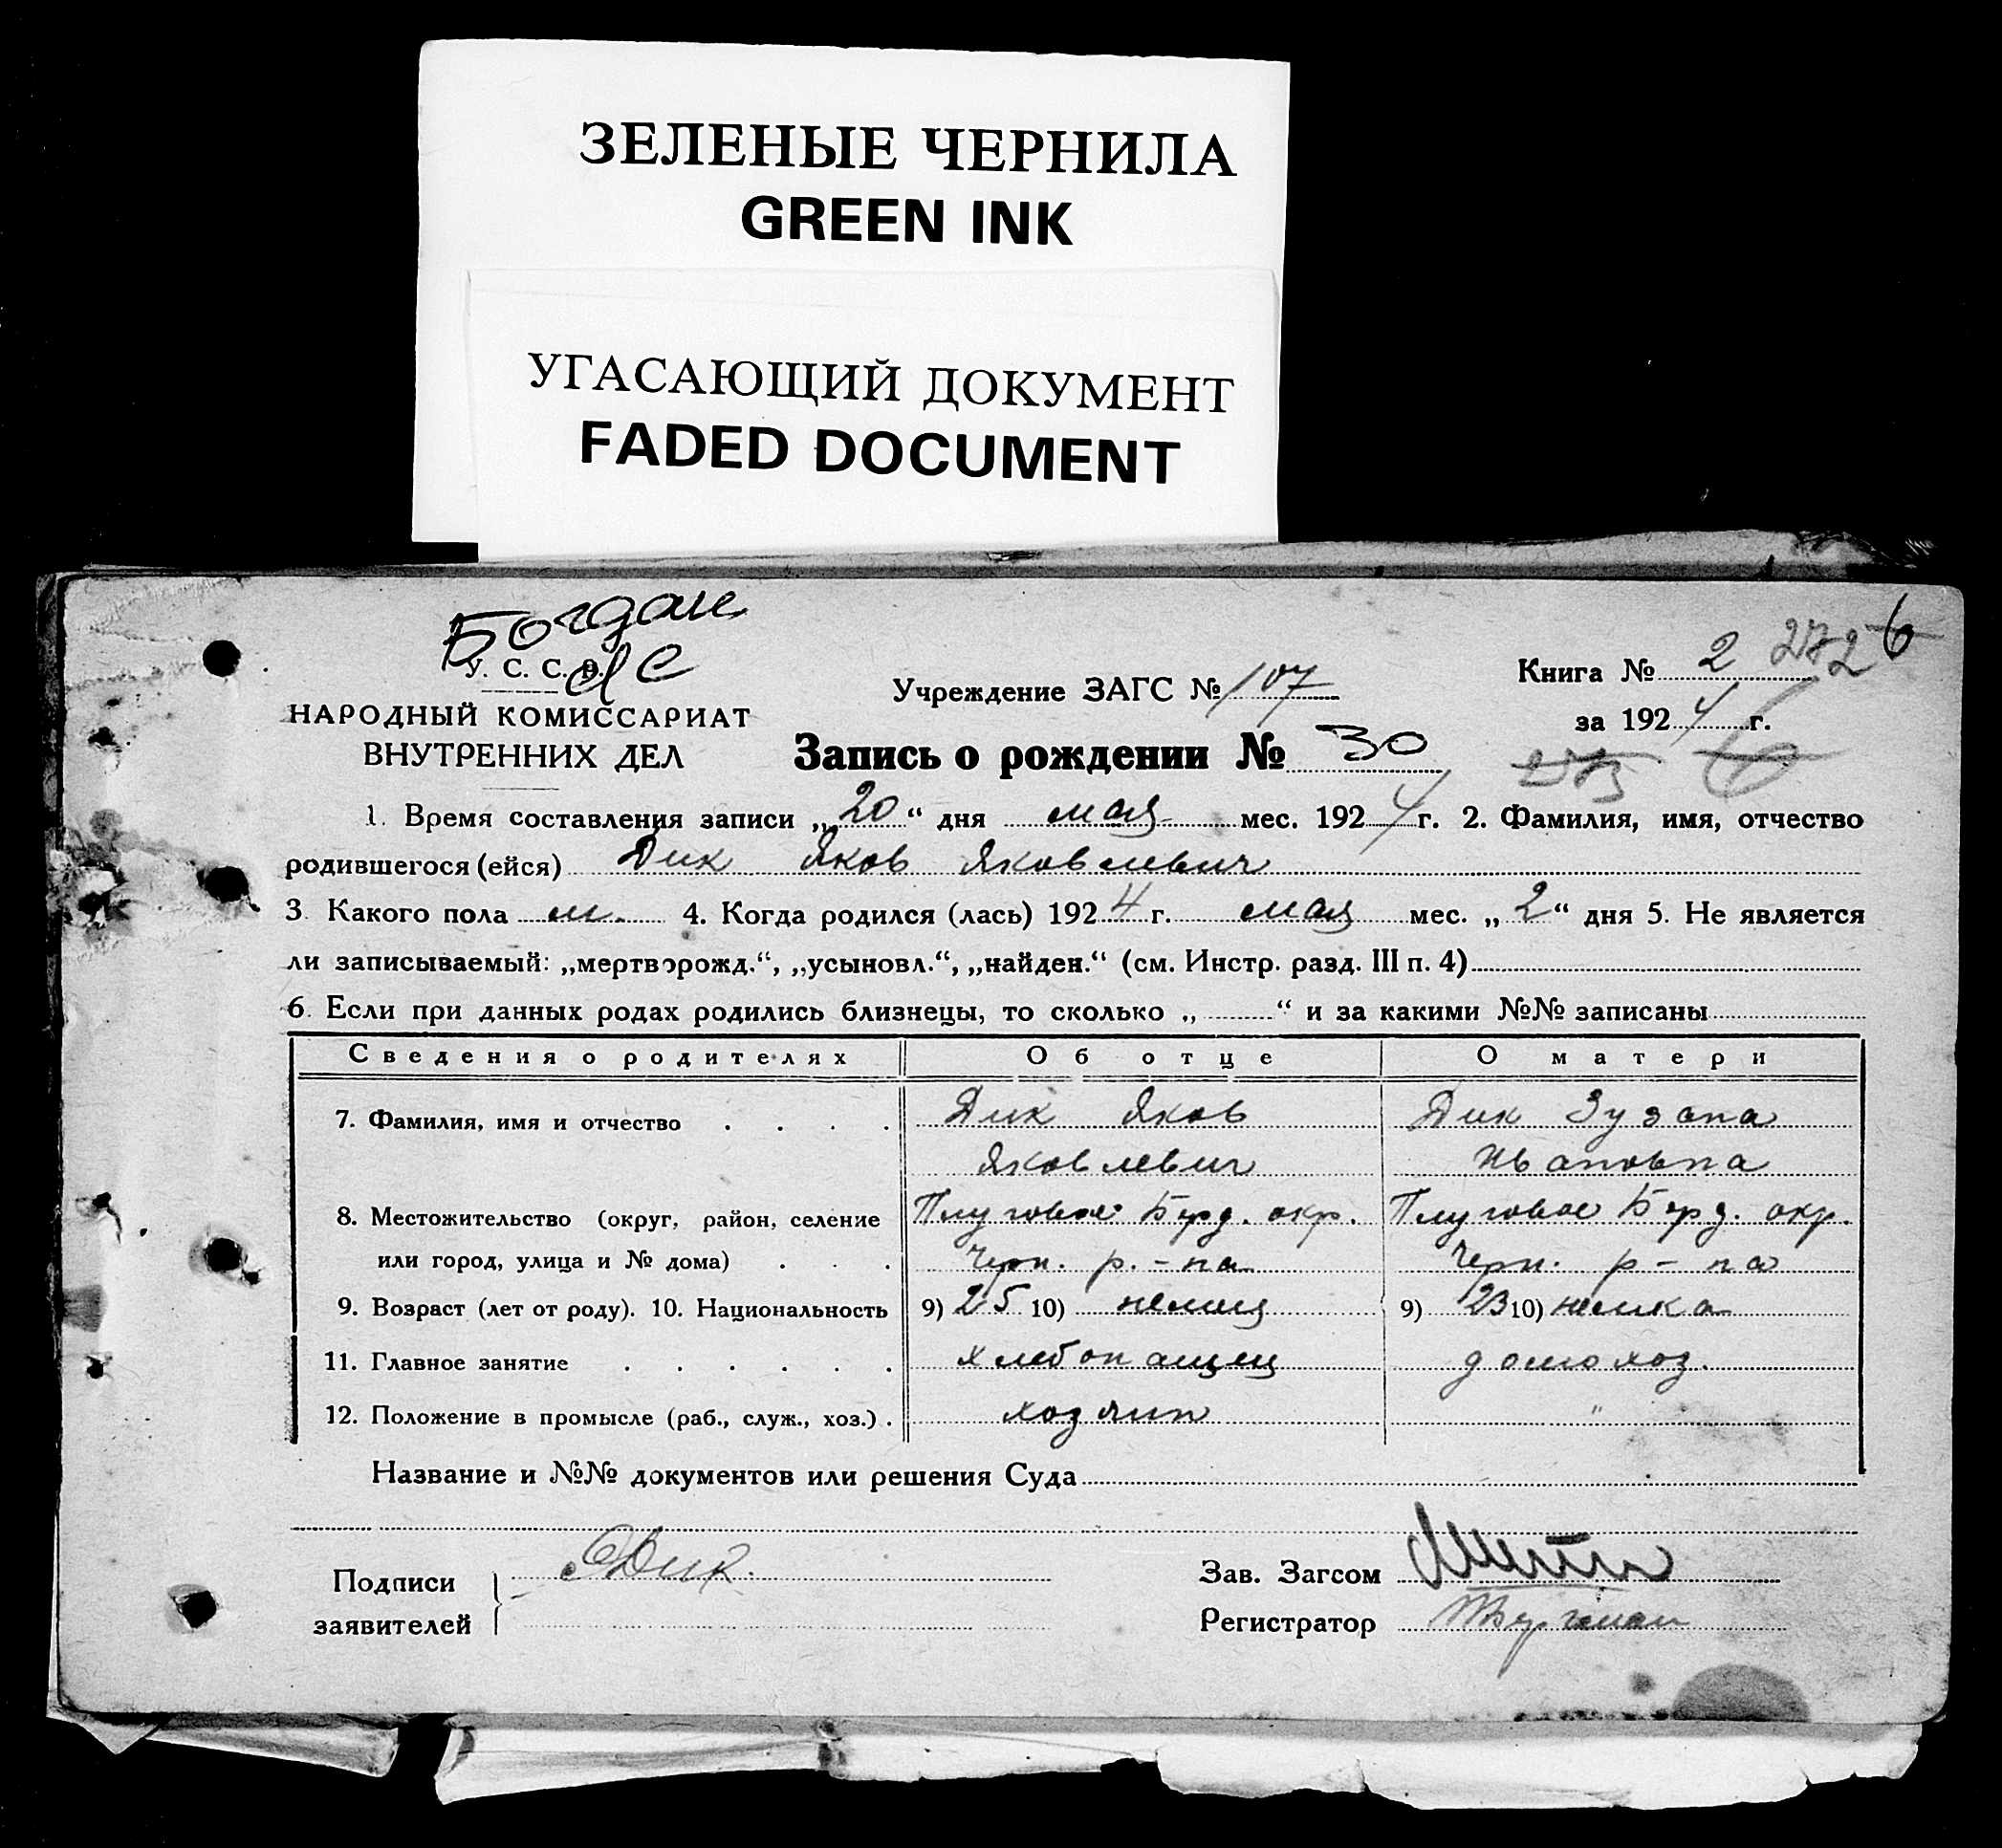 ЗЕЛЕНЫЕ ЧЕРНИЛА
GREEN INK
УГАСАЮЩИЙ ДОКУМЕНТ
FADED DOCUMENT
Богдан
с/с
У. С. С. Р.
НАРОДНЫЙ КОМИССАРИАТ
ВНУТРЕННИХ ДЕЛ
Учреждение ЗАГС № 107
Книга № 2 272 6
за 1924 г.
Запись о рождении № 30
1. Время составления записи „20“ дня мая мес. 1924 г. 2. Фамилия, имя, отчество
родившегося (ейся) Дик Яков Яковлевич
3. Какого пола м. 4. Когда родился (лась) 1924 г. мая мес. „2“ дня 5. Не является
ли записываемый: „мертворожд.“, „усыновл.“, „найден.“ (см. Инстр. разд. III п. 4)
6. Если при данных родах родились близнецы, то сколько „ “ и за какими №№ записаны
Сведения о родителях Об отце О матери
7. Фамилия, имя и отчество Дик Яков Дик Зузана
Яковлевич Ивановна
8. Местожительство (округ, район, селение Плуговое Берд. окр. Плуговое Берд. окр.
или город, улица и № дома) Черн. р.-на Черн. р-на
9. Возраст (лет от роду). 10. Национальность 9) 25 10) немец 9) 23 10) немка
11. Главное занятие хлебопашец домохоз.
12. Положение в промысле (раб., служ., хоз.) хозяин "
Название и №№ документов или решения Суда
Подписи Дик.
заявителей
Зав. Загсом
Регистратор